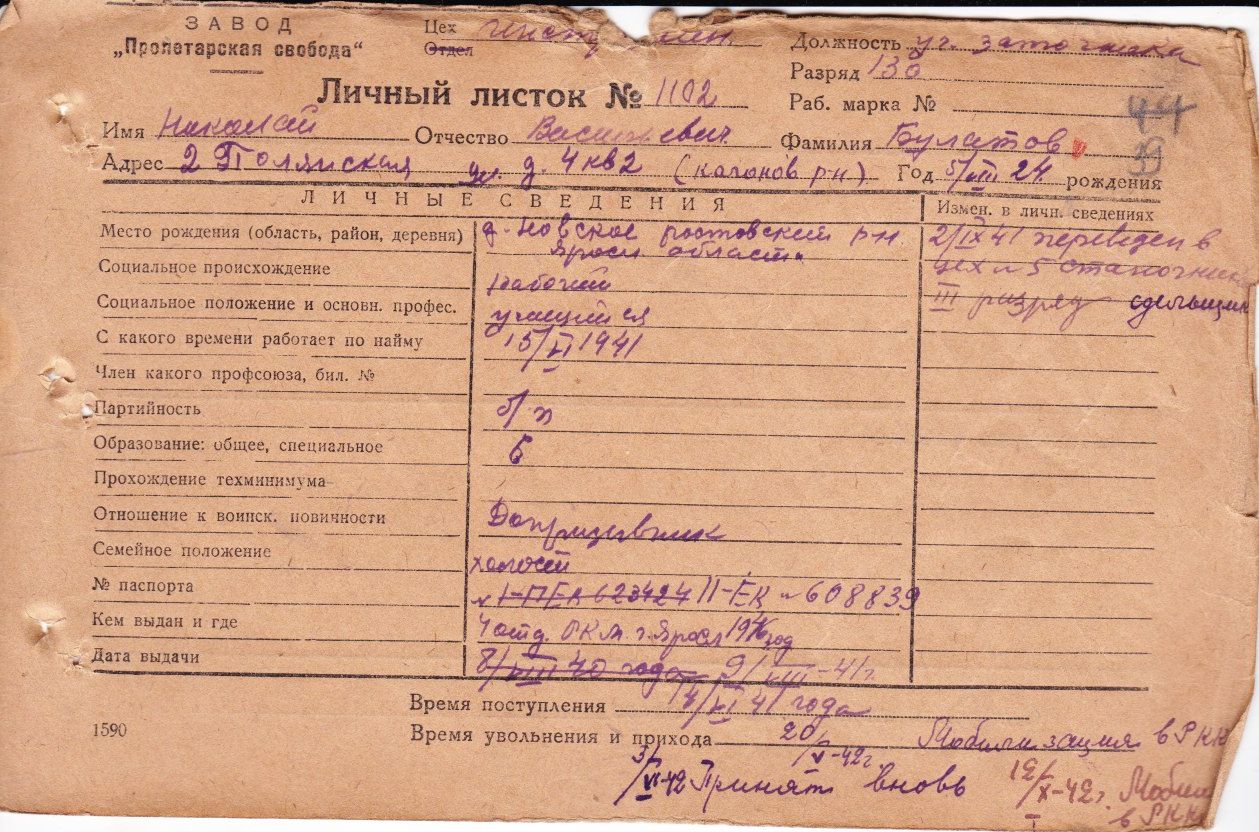 ЗАВОД
„Пролетарская свобода“
Цех
Отдел
Должность уч. заточника
Разряд
Личный листок № 1102
Раб. марка №
44
39
Имя Николай Отчество Васильевич Фамилия Булатов
Адрес 2 Полянская д. 4 кв 2 (каганов р-н) Год 5/III 24 рождения
ЛИЧНЫЕ СВЕДЕНИЯ
Измен. в личн. сведениях
Место рождения (область, район, деревня) д. Новское ростовский р-н
Яросл области
2/IX 41 переведен в
цех № 5 станочник
III разряд сдельщик
Социальное происхождение рабочий
Социальное положение и основн. профес. учащийся
С какого времени работает по найму 15/VI 1941
Член какого профсоюза, бил. №
Партийность б/п
Образование: общее, специальное 6
Прохождение техминимума
Отношение к воинск. повичности Допризывник
Семейное положение холост
№ паспорта 623424 II-ЕК № 608839
Кем выдан и где 4 отд. РКМ г. Яросл год
Дата выдачи 8/VIII 40 года 9/VIII-41 г.
Время поступления 14/VI 41 года
1590
Время увольнения и прихода 20/V-42 г. Мобилизация в РКК
3/VI-42 Принят вновь
12/X-42 г. Мобил
в РКК